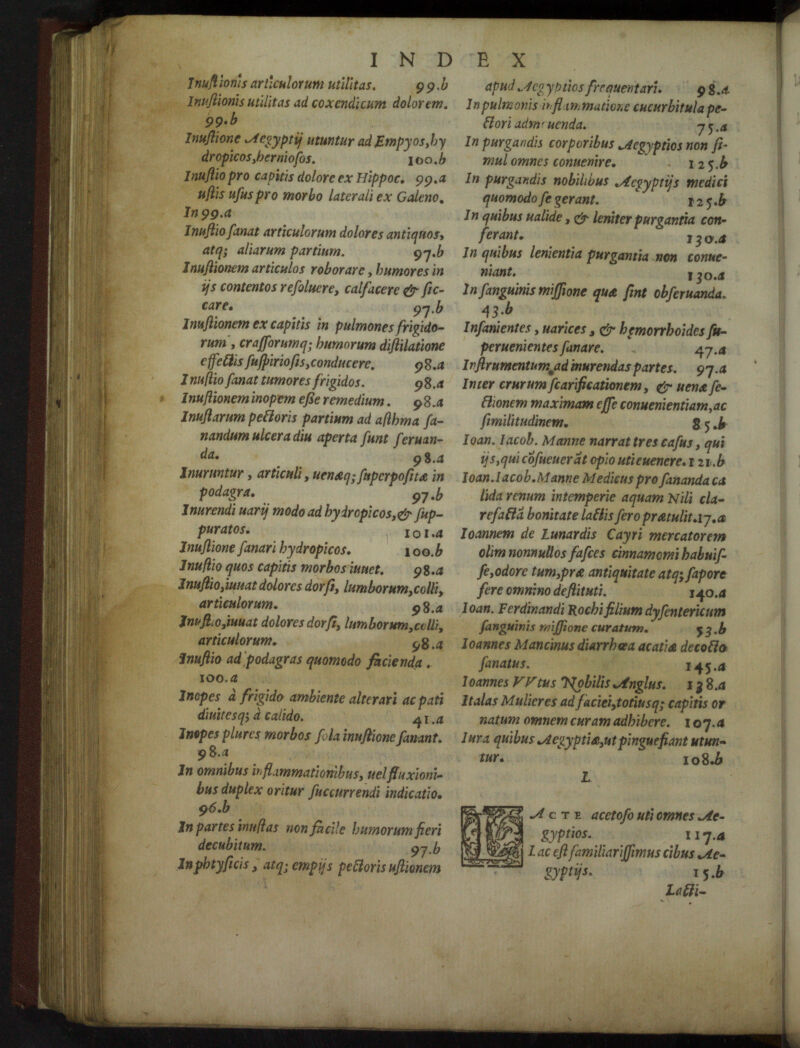 INDEX
Inuſtionis articulorum utilitas. 99.b
Inuſtionis utilitas ad coxendicum dolorem.
99.b
Inuſtione Aegyptij utuntur ad Empyos,hy
dropicos,herniofos. 100.b
Inuſtio pro capitis dolore ex Hippoc. 99.a
uſtis uſus pro morbo laterali ex Galeno.
In 99.a
Inuſtio ſanat articulorum dolores antiquos,
atq; aliarum partium. 97.b
Inuſtionem articulos roborare, humores in
ijs contentos reſoluere, calfacere & ſic-
care. 97.b
Inuſtionem ex capitis in pulmones frigido-
rum, craſſorumq; humorum diſtilatione
effectis ſuſpirioſis,conducere. 98.a
Inuſtio ſanat tumores frigidos. 98.a
Inuſtionem inopem eſſe remedium. 98.a
Inuſtarum pectoris partium ad aſthma ſa-
nandum ulcera diu aperta ſunt ſeruan-
da. 98.a
Inuruntur, articuli, uenæq; ſuperpoſitæ in
podagra. 97.b
Inurendi uarij modo ad hydropicos,& ſup-
puratos. 101.a
Inuſtione ſanari hydropicos. 100.b
Inuſtio quos capitis morbos iuuet. 98.a
Inuſtio,iuuat dolores dorſi, lumborum,colli,
articulorum. 98.a
Inuſtio,iuuat dolores dorſi, lumborum,colli,
articulorum. 98.a
Inuſtio ad podagras quomodo facienda.
100.a
Inopes à frigido ambiente alterari ac pati
diuitesq; à calido. 41.a
Inopes plures morbos ſola inuſtione ſanant.
98.a
In omnibus inflammationibus, uel fluxioni-
bus duplex oritur ſuccurrendi indicatio.
96.b
In partes inuſtas non facile humorum fieri
decubitum. 97.b
In phtyſicis, atq; empijs pectoris uſtionem
apud Aegyptios frequentari. 98.a
In pulmonis inflammatione cucurbitula pe-
ctori admouenda. 75.a
In purgandis corporibus Aegyptios non ſi-
mul omnes conuenire. 125.b
In purgandis nobilibus Aegyptijs medici
quomodo ſe gerant. 125.b
In quibus ualide, & leniter purgantia con-
ferant. 130.a
In quibus lenientia purgantia non conue-
niant. 130.a
In ſanguinis miſſione quæ ſint obſeruanda.
43.b
Inſanientes, uarices, & hęmorrhoides ſu-
peruenientes ſanare. 47.a
Inſtrumentum ad inurendas partes. 97.a
Inter crurum ſcarificationem, & uenæ ſe-
ctionem maximam eſſe conuenientiam,ac
ſimilitudinem. 85.b
Ioan. Iacob. Manne narrat tres caſus, qui
ijs,qui cõſueuerãt opio uti euenere. 121.b
Ioan.Iacob.Manne Medicus pro ſananda ca
lida renum intemperie aquam Nili cla-
refactã bonitate lactis ſero prætulit.17.a
Ioannem de Lunardis Cayri mercatorem
olim nonnullos faſces cinnamomi habuiſ-
ſe,odore tum,præ antiquitate atq; ſapore
fere omnino deſtituti. 140.a
Ioan. Ferdinandi Rochi filium dyſentericum
ſanguinis miſſione curatum. 53.b
Ioannes Mancinus diarrhœa acatiæ decocto
ſanatus. 145.a
Ioannes VVtus Nobilis Anglus. 138.a
Italas Mulieres ad faciei,totiusq; capitis or
natum omnem curam adhibere. 107.a
Iura quibus Aegyptiæ,ut pinguefiant utun-
tur. 108.b
L
LACTE acetoſo uti omnes Ae-
gyptios. 117.a
Lac eſt familiariſſimus cibus Ae-
gyptijs. 15.b
Lacti-